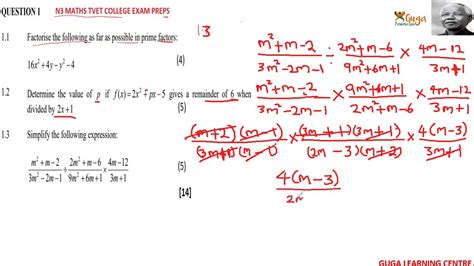 QUESTION 1
N3 MATHS TVET COLLEGE EXAM PREPS
Guga
1.1 Factorise the following as far as possible in prime factors:
16x² + 4y − y² − 4
(4)
1.2 Determine the value of p if f(x) = 2x² + px − 5 gives a remainder of 6 when
divided by 2x + 1
(5)
1.3 Simplify the following expression:
(m² + m − 2)/(3m² − 2m − 1) ÷ (2m² + m − 6)/(9m² + 6m + 1) × (4m − 12)/(3m + 1)
(5)
[14]
13
(m² + m − 2)/(3m² − 2m − 1) ÷ (2m² + m − 6)/(9m² + 6m + 1) × (4m − 12)/(3m + 1)
(m² + m − 2)/(3m² − 2m − 1) × (9m² + 6m + 1)/(2m² + m − 6) × (4m − 12)/(3m + 1)
(m + 2)(m − 1)/(3m + 1)(m − 1) × (3m + 1)(3m + 1)/(2m − 3)(m + 2) × 4(m − 3)/(3m + 1)
4(m − 3)/2m
GUGA LEARNING CENTRE